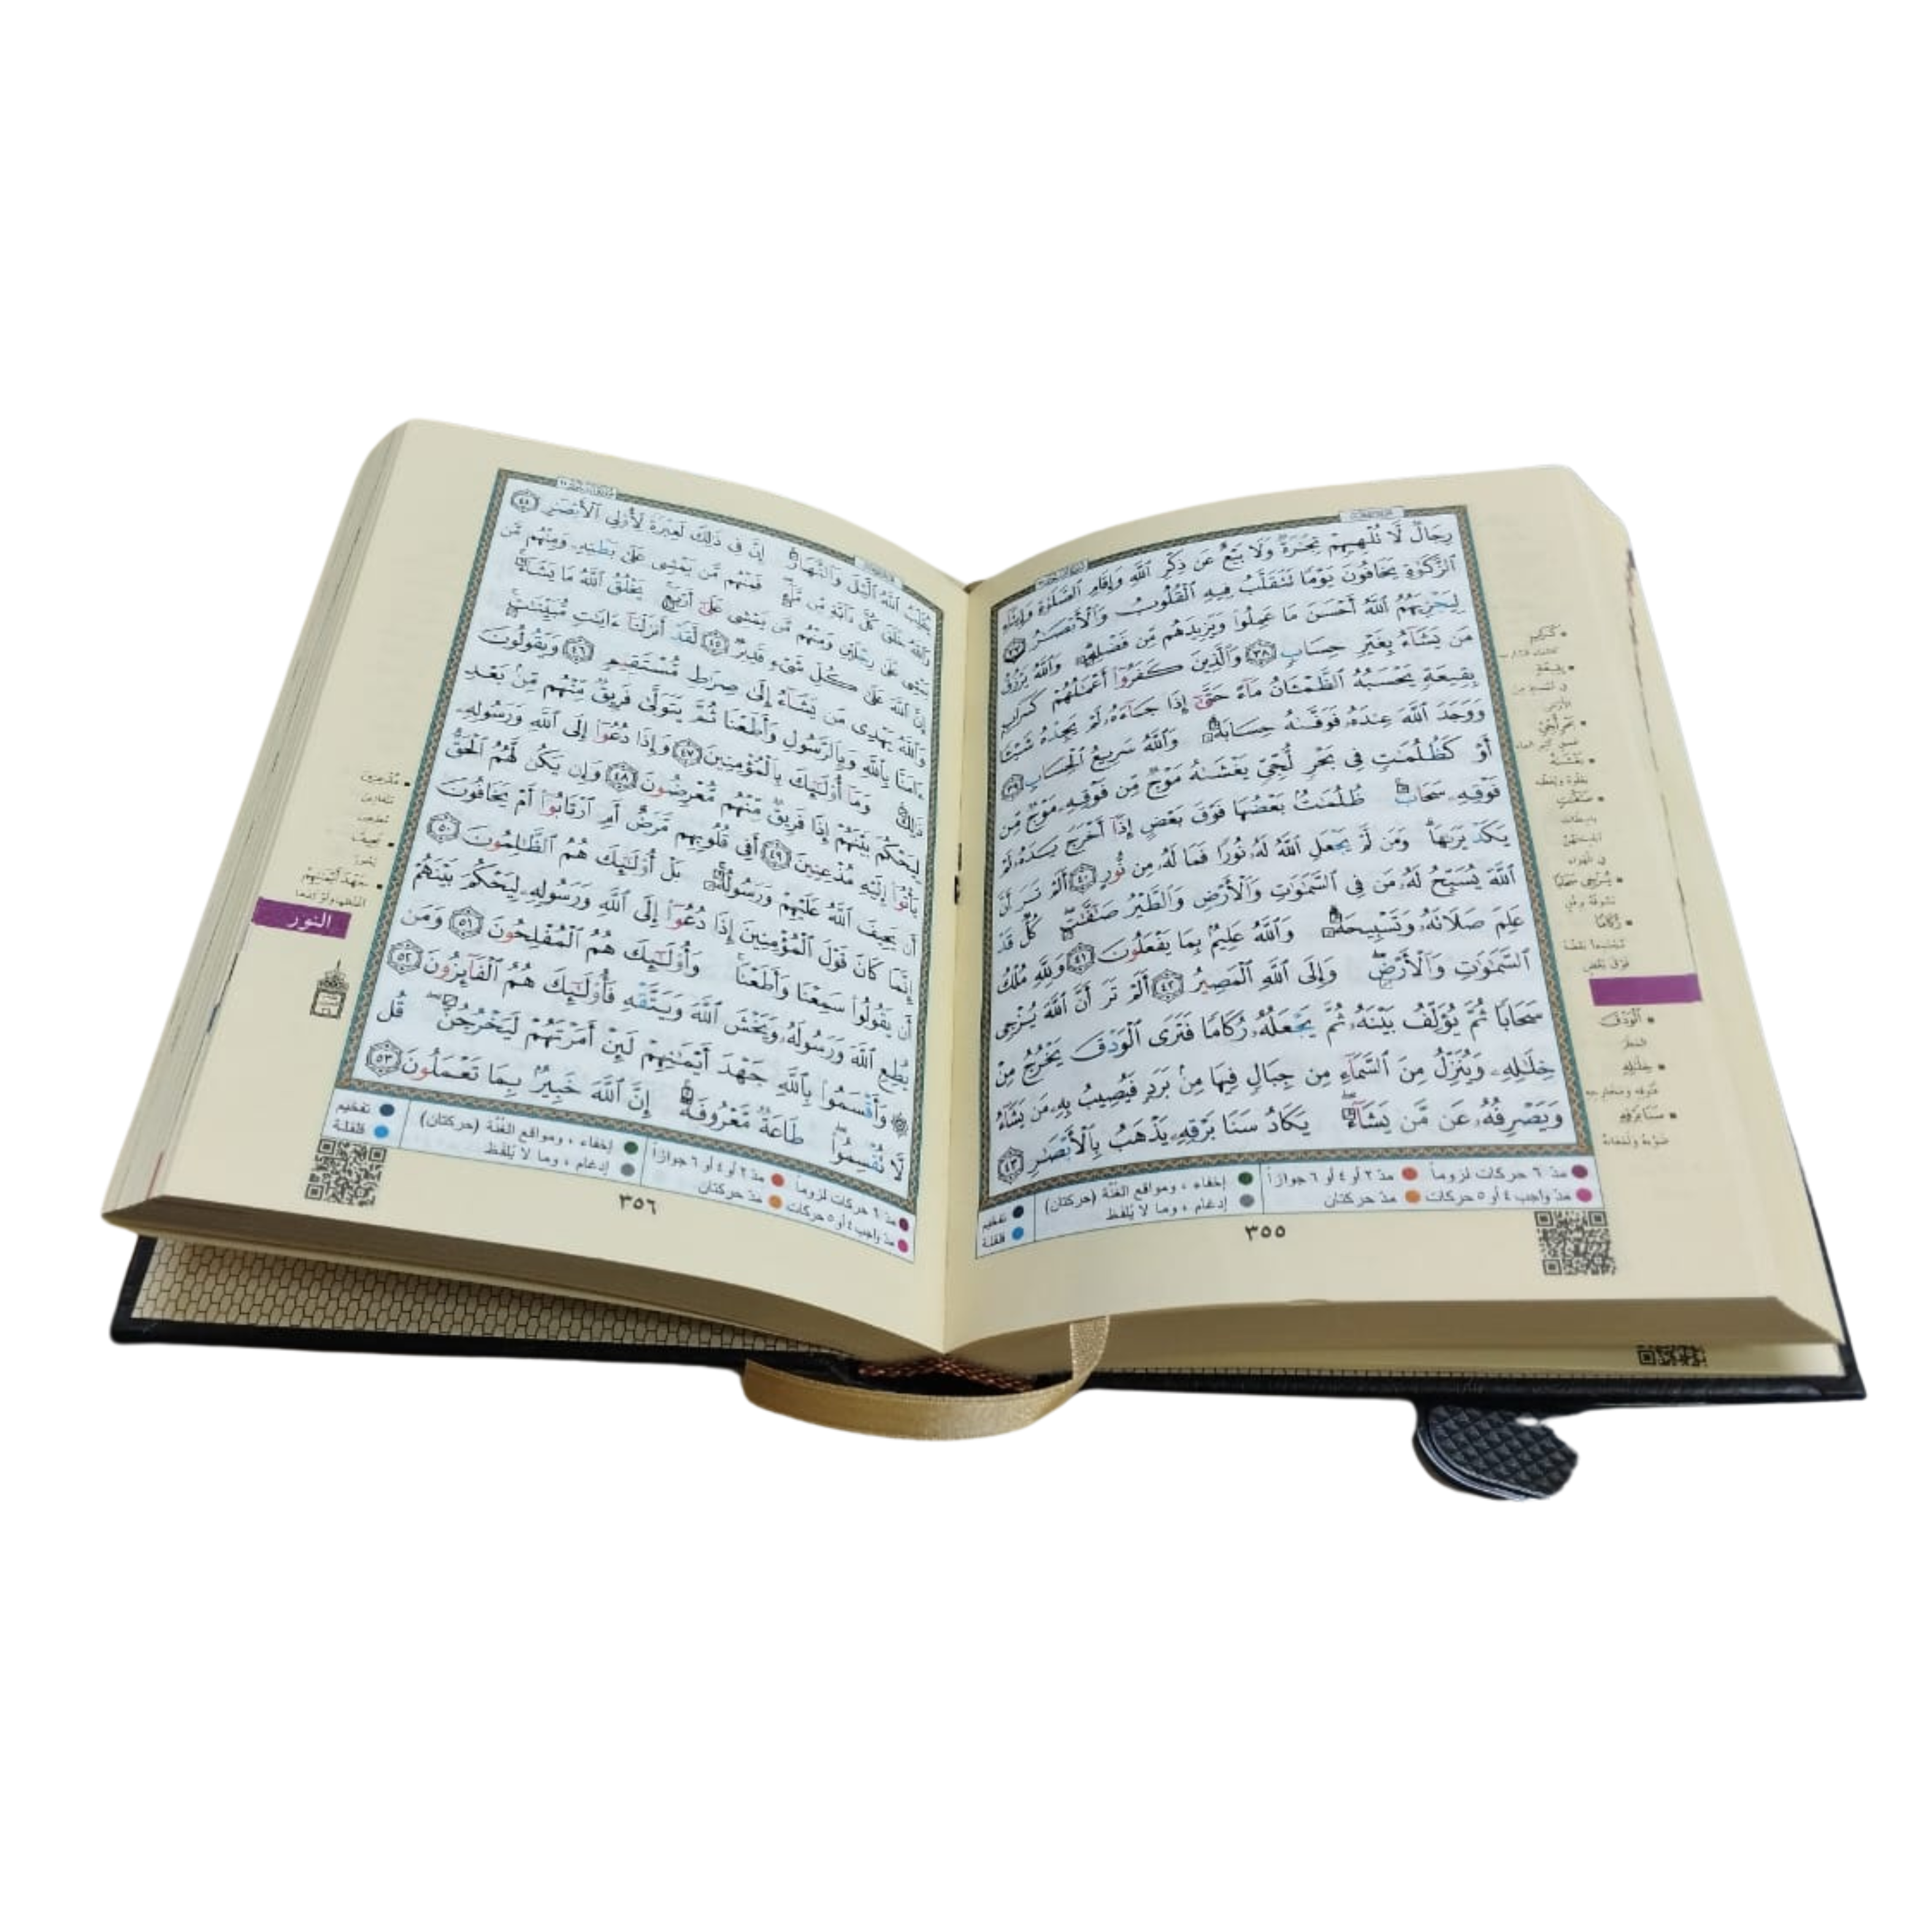 رِجَالٌ لَّا تُلْهِيهِمْ تِجَٰرَةٌ وَلَا بَيْعٌ عَن ذِكْرِ ٱللَّهِ وَإِقَامِ ٱلصَّلَوٰةِ وَإِيتَآءِ
ٱلزَّكَوٰةِ يَخَافُونَ يَوْمًا تَتَقَلَّبُ فِيهِ ٱلْقُلُوبُ وَٱلْأَبْصَٰرُ ٣٧
لِيَجْزِيَهُمُ ٱللَّهُ أَحْسَنَ مَا عَمِلُوا۟ وَيَزِيدَهُم مِّن فَضْلِهِۦ وَٱللَّهُ يَرْزُقُ
مَن يَشَآءُ بِغَيْرِ حِسَابٍ ٣٨ وَٱلَّذِينَ كَفَرُوٓا۟ أَعْمَٰلُهُمْ كَسَرَابٍۭ
بِقِيعَةٍ يَحْسَبُهُ ٱلظَّمْـَٔانُ مَآءً حَتَّىٰٓ إِذَا جَآءَهُۥ لَمْ يَجِدْهُ شَيْـًٔا
وَوَجَدَ ٱللَّهَ عِندَهُۥ فَوَفَّىٰهُ حِسَابَهُۥ وَٱللَّهُ سَرِيعُ ٱلْحِسَابِ ٣٩
أَوْ كَظُلُمَٰتٍ فِى بَحْرٍ لُّجِّىٍّ يَغْشَىٰهُ مَوْجٌ مِّن فَوْقِهِۦ مَوْجٌ مِّن
فَوْقِهِۦ سَحَابٌ ظُلُمَٰتٌۢ بَعْضُهَا فَوْقَ بَعْضٍ إِذَآ أَخْرَجَ يَدَهُۥ لَمْ
يَكَدْ يَرَىٰهَا وَمَن لَّمْ يَجْعَلِ ٱللَّهُ لَهُۥ نُورًا فَمَا لَهُۥ مِن نُّورٍ ٤٠ أَلَمْ تَرَ أَنَّ
ٱللَّهَ يُسَبِّحُ لَهُۥ مَن فِى ٱلسَّمَٰوَٰتِ وَٱلْأَرْضِ وَٱلطَّيْرُ صَٰٓفَّٰتٍ كُلٌّ قَدْ
عَلِمَ صَلَاتَهُۥ وَتَسْبِيحَهُۥ وَٱللَّهُ عَلِيمٌۢ بِمَا يَفْعَلُونَ ٤١ وَلِلَّهِ مُلْكُ
ٱلسَّمَٰوَٰتِ وَٱلْأَرْضِ وَإِلَى ٱللَّهِ ٱلْمَصِيرُ ٤٢ أَلَمْ تَرَ أَنَّ ٱللَّهَ يُزْجِى
سَحَابًا ثُمَّ يُؤَلِّفُ بَيْنَهُۥ ثُمَّ يَجْعَلُهُۥ رُكَامًا فَتَرَى ٱلْوَدْقَ يَخْرُجُ مِنْ
خِلَٰلِهِۦ وَيُنَزِّلُ مِنَ ٱلسَّمَآءِ مِن جِبَالٍ فِيهَا مِنۢ بَرَدٍ فَيُصِيبُ بِهِۦ مَن يَشَآءُ
وَيَصْرِفُهُۥ عَن مَّن يَشَآءُ يَكَادُ سَنَا بَرْقِهِۦ يَذْهَبُ بِٱلْأَبْصَٰرِ ٤٣
كَسَرَابٍ
بِقِيعَةٍ
بَحْرٍ لُّجِّىٍّ
يَغْشَىٰهُ
صَٰٓفَّٰتٍ
باسطات
أجنحتهن
في الهواء
يُزْجِى سَحَابًا
رُكَامًا
فوق بعض
ٱلْوَدْقَ
المطر
خِلَٰلِهِۦ
سَنَا بَرْقِهِۦ
مدّ ٦ حركات لزوماً مدّ ٢ أو ٤ أو ٦ جوازاً إخفاء، ومواقع الغُنَّة (حركتان) تفخيم
مدّ واجب ٤ أو ٥ حركات مدّ حركتان إدغام، وما لا يُلفَظ قلقلة
٣٥٥
يُقَلِّبُ ٱللَّهُ ٱلَّيْلَ وَٱلنَّهَارَ إِنَّ فِى ذَٰلِكَ لَعِبْرَةً لِّأُو۟لِى ٱلْأَبْصَٰرِ ٤٤
وَٱللَّهُ خَلَقَ كُلَّ دَآبَّةٍ مِّن مَّآءٍ فَمِنْهُم مَّن يَمْشِى عَلَىٰ بَطْنِهِۦ وَمِنْهُم مَّن
يَمْشِى عَلَىٰ رِجْلَيْنِ وَمِنْهُم مَّن يَمْشِى عَلَىٰٓ أَرْبَعٍ يَخْلُقُ ٱللَّهُ مَا يَشَآءُ
إِنَّ ٱللَّهَ عَلَىٰ كُلِّ شَىْءٍ قَدِيرٌ ٤٥ لَّقَدْ أَنزَلْنَآ ءَايَٰتٍ مُّبَيِّنَٰتٍ
وَٱللَّهُ يَهْدِى مَن يَشَآءُ إِلَىٰ صِرَٰطٍ مُّسْتَقِيمٍ ٤٦ وَيَقُولُونَ
ءَامَنَّا بِٱللَّهِ وَبِٱلرَّسُولِ وَأَطَعْنَا ثُمَّ يَتَوَلَّىٰ فَرِيقٌ مِّنْهُم مِّنۢ بَعْدِ
ذَٰلِكَ وَمَآ أُو۟لَٰٓئِكَ بِٱلْمُؤْمِنِينَ ٤٧ وَإِذَا دُعُوٓا۟ إِلَى ٱللَّهِ وَرَسُولِهِۦ
لِيَحْكُمَ بَيْنَهُمْ إِذَا فَرِيقٌ مِّنْهُم مُّعْرِضُونَ ٤٨ وَإِن يَكُن لَّهُمُ ٱلْحَقُّ
يَأْتُوٓا۟ إِلَيْهِ مُذْعِنِينَ ٤٩ أَفِى قُلُوبِهِم مَّرَضٌ أَمِ ٱرْتَابُوٓا۟ أَمْ يَخَافُونَ
أَن يَحِيفَ ٱللَّهُ عَلَيْهِمْ وَرَسُولُهُۥ بَلْ أُو۟لَٰٓئِكَ هُمُ ٱلظَّٰلِمُونَ ٥٠
إِنَّمَا كَانَ قَوْلَ ٱلْمُؤْمِنِينَ إِذَا دُعُوٓا۟ إِلَى ٱللَّهِ وَرَسُولِهِۦ لِيَحْكُمَ بَيْنَهُمْ
أَن يَقُولُوا۟ سَمِعْنَا وَأَطَعْنَا وَأُو۟لَٰٓئِكَ هُمُ ٱلْمُفْلِحُونَ ٥١ وَمَن
يُطِعِ ٱللَّهَ وَرَسُولَهُۥ وَيَخْشَ ٱللَّهَ وَيَتَّقْهِ فَأُو۟لَٰٓئِكَ هُمُ ٱلْفَآئِزُونَ ٥٢
وَأَقْسَمُوا۟ بِٱللَّهِ جَهْدَ أَيْمَٰنِهِمْ لَئِنْ أَمَرْتَهُمْ لَيَخْرُجُنَّ قُل
لَّا تُقْسِمُوا۟ طَاعَةٌ مَّعْرُوفَةٌ إِنَّ ٱللَّهَ خَبِيرٌۢ بِمَا تَعْمَلُونَ ٥٣
مُذْعِنِينَ
يَحِيفَ
جَهْدَ أَيْمَٰنِهِمْ
النور
مدّ ٦ حركات لزوماً مدّ ٢ أو ٤ أو ٦ جوازاً إخفاء، ومواقع الغُنَّة (حركتان) تفخيم
مدّ واجب ٤ أو ٥ حركات مدّ حركتان إدغام، وما لا يُلفَظ قلقلة
٣٥٦